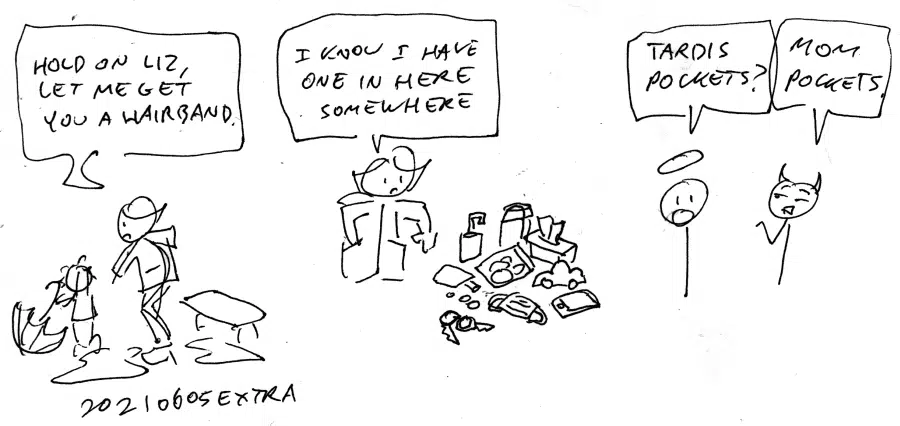 HOLD ON LIZ,
LET ME GET
YOU A HAIRBAND.
I KNOW I HAVE
ONE IN HERE
SOMEWHERE
TARDIS
POCKETS?
MOM
POCKETS.
20210605EXTRA